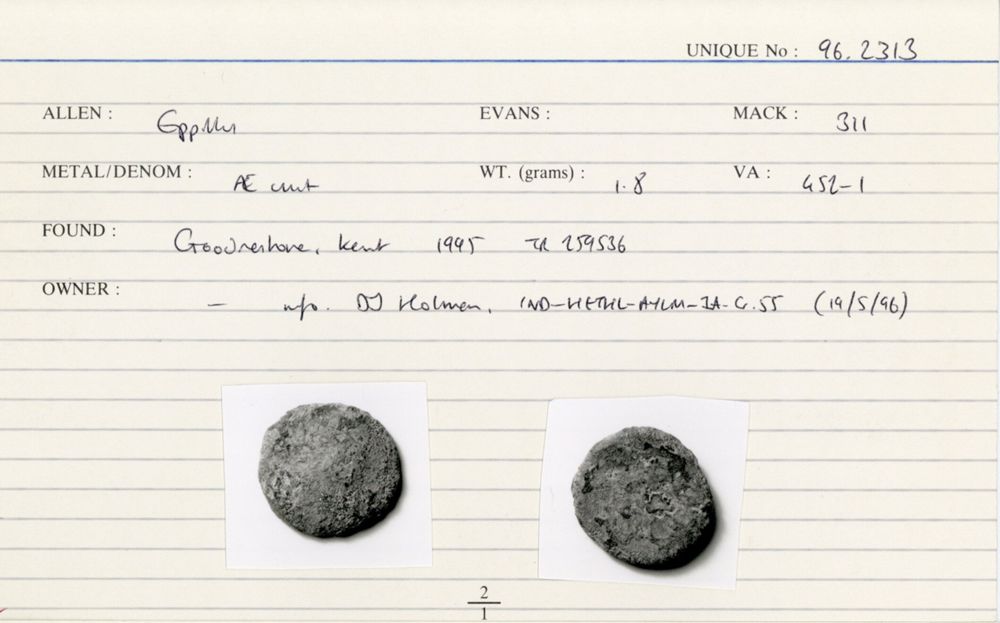 UNIQUE No : 96.2313
ALLEN : Eppillus EVANS : MACK : 311
METAL/DENOM : Æ unit WT. (grams) : 1.8 VA : 452-1
FOUND : Goodnestone, Kent 1995 TR 259536
OWNER : — info. DJ Holman, IA-C.55 (19/5/96)
2
1